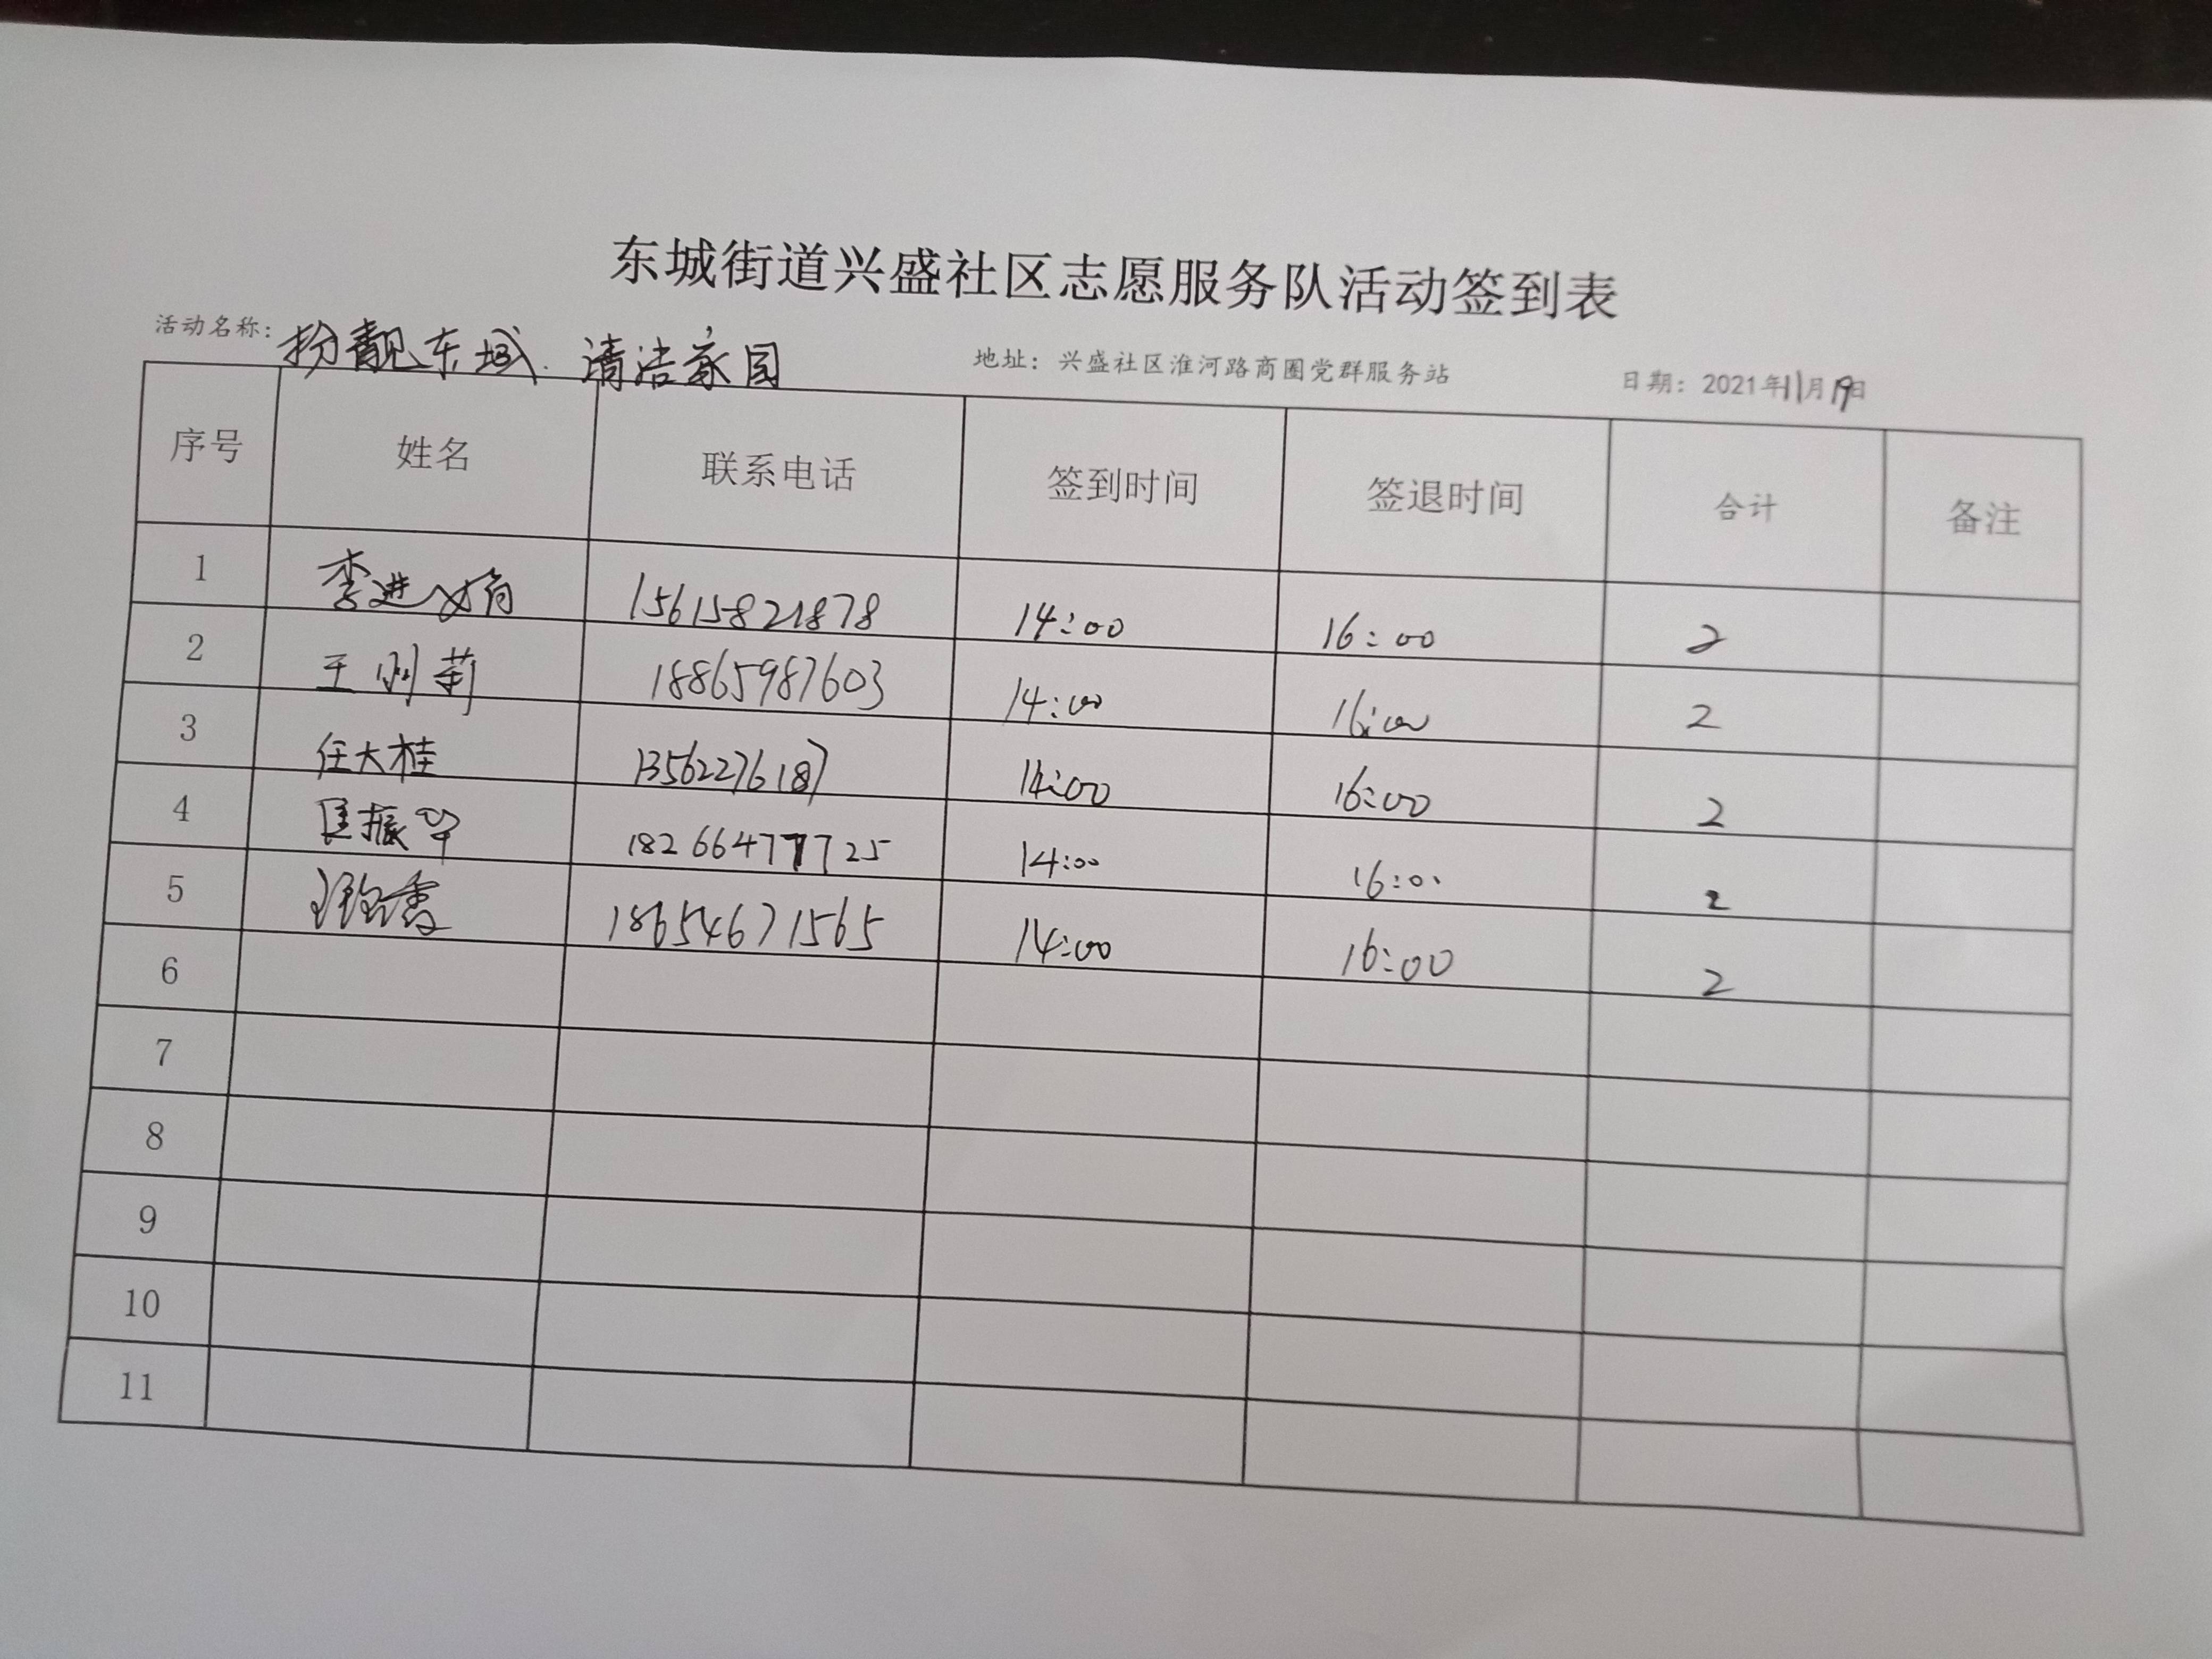 东城街道兴盛社区志愿服务队活动签到表
活动名称: 扮靓东城.清洁家园 地址：兴盛社区淮河路商圈党群服务站 日期：2021年11月19日
序号 姓名 联系电话 签到时间 签退时间 合计 备注
1 李进 15615821878 14:00 16:00 2
2 王 莉 18865987603 14:00 16:00 2
3 任大桂 13562276187 14:00 16:00 2
4 匡振华 18266477725 14:00 16:00 2
5 18654671565 14:00 16:00 2
6
7
8
9
10
11